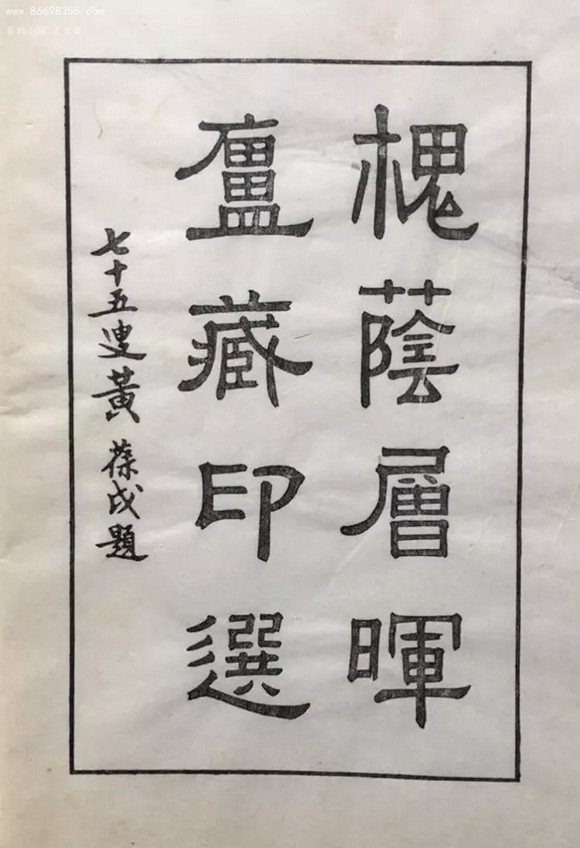 www.86698355.com
槐蔭層暉
廬藏印選
七十五叟黃葆戉題